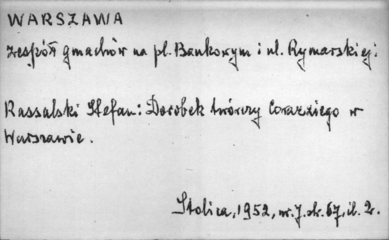 WARSZAWA
Zespół gmachów na pl. Bankowym i ul. Rymarskiej:
Rassalski Stefan: Dorobek twórczy Corazziego w
Warszawie.
Stolica, 1952, nr. 7. str. 67, il. 2.